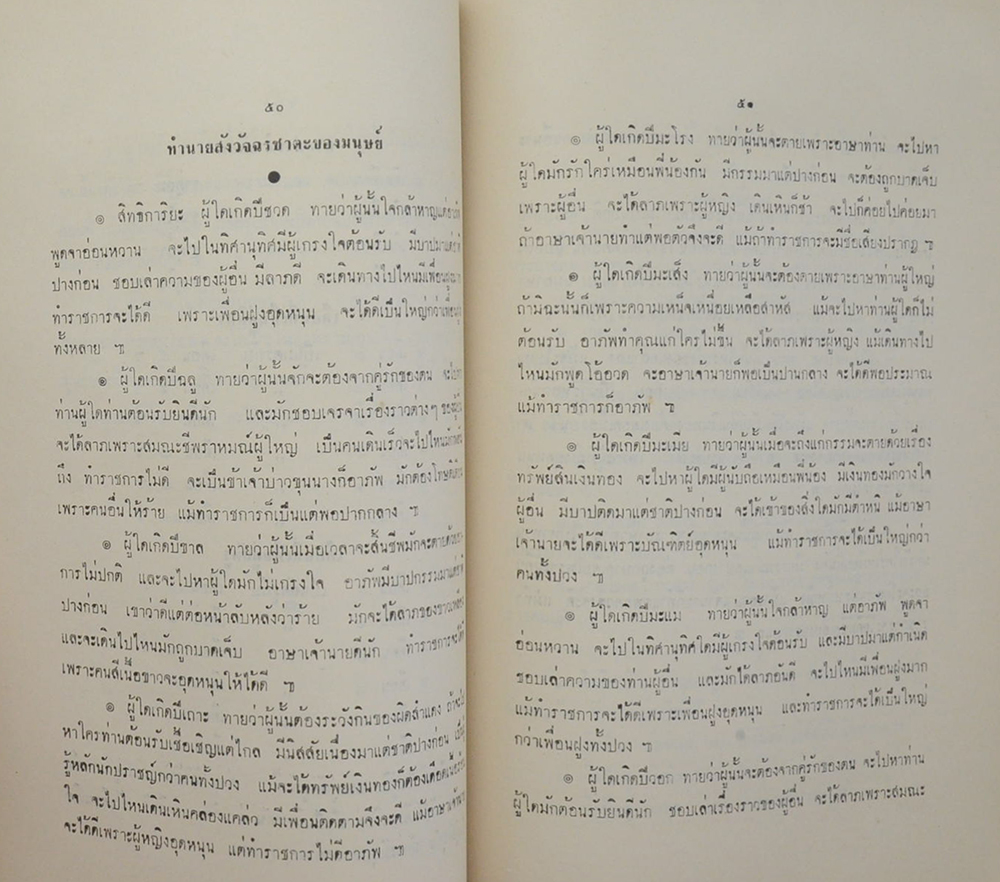 ๕๐
ทำนายสังวัจฉรชาตะของมนุษย์
๏ สิทธิการิยะ ผู้ใดเกิดปีชวด ทายว่าผู้นั้นใจกล้าหาญแต่อาภัพ
พูดจาอ่อนหวาน จะไปในทิศานุทิศมีผู้เกรงใจต้อนรับ มีบาปมาแต่
ปางก่อน ชอบเล่าความของผู้อื่น มีลาภดี จะเดินทางไปไหนมีเพื่อนฝูงมาก
ทำราชการจะได้ดี เพราะเพื่อนฝูงอุดหนุน จะได้ดีเป็นใหญ่กว่าเพื่อนฝูง
ทั้งหลาย ฯ
๏ ผู้ใดเกิดปีฉลู ทายว่าผู้นั้นจักจะต้องจากคู่รักของตน จะไปหา
ท่านผู้ใดท่านต้อนรับยินดีนัก และมักชอบเจรจาเรื่องราวต่างๆ ของผู้อื่น
จะได้ลาภเพราะสมณะชีพราหมณ์ผู้ใหญ่ เป็นคนเดินเร็วจะไปไหนมัก
ถึง ทำราชการไม่ดี จะเป็นข้าเจ้าบ่าวขุนนางก็อาภัพ มักต้องโทษ
เพราะคนอื่นให้ร้าย แม้ทำราชการก็เป็นแต่พอปากกลาง ฯ
๏ ผู้ใดเกิดปีขาล ทายว่าผู้นั้นเมื่อเวลาจะสิ้นชีพมักจะตายด้วย
การไม่ปกติ และจะไปหาผู้ใดมักไม่เกรงใจ อาภัพมีบาปกรรมมาแต่
ปางก่อน เขาว่าดีแต่ต่อหน้าลับหลังว่าร้าย มักจะได้ลาภของขาวเหลือง
และจะเดินไปไหนมักถูกบาดเจ็บ อาษาเจ้านายดีนัก ทำราชการจะได้ดี
เพราะคนสีเนื้อขาวจะอุดหนุนให้ได้ดี ฯ
๏ ผู้ใดเกิดปีเถาะ ทายว่าผู้นั้นต้องระวังกินของผิดสำแดง ถ้าจะไป
หาใครท่านต้อนรับเชื้อเชิญแต่ไกล มีนิสสัยเนื่องมาแต่ชาติปางก่อน
รู้หลักนักปราชญ์กว่าคนทั้งปวง แม้จะได้ทรัพย์เงินทองก็ต้องเดือดเนื้อร้อน
ใจ จะไปไหนเดินเหินคล่องแคล่ว มีเพื่อนติดตามจึงจะดี แม้อาษาเจ้านาย
จะได้ดีเพราะผู้หญิงอุดหนุน แต่ทำราชการไม่ดีอาภัพ ฯ
๕๑
๏ ผู้ใดเกิดปีมะโรง ทายว่าผู้นั้นจะตายเพราะอาษาท่าน จะไปหา
ผู้ใดมักรักใคร่เหมือนพี่น้องกัน มีกรรมมาแต่ปางก่อน จะต้องถูกบาดเจ็บ
เพราะผู้อื่น จะได้ลาภเพราะผู้หญิง เดินเหินก็ช้า จะไปก็ค่อยไปค่อยมา
ถ้าอาษาเจ้านายทำแต่พอตัวจึงจะดี แม้ถ้าทำราชการจะมีชื่อเสียงปรากฏ ฯ
๏ ผู้ใดเกิดปีมะเส็ง ทายว่าผู้นั้นจะต้องตายเพราะอาษาท่านผู้ใหญ่
ถ้ามิฉะนั้นก็เพราะความเหน็จเหนื่อยเหลือสำหัส แม้จะไปหาท่านผู้ใดก็ไม่
ต้อนรับ อาภัพทำคุณแก่ใครไม่ขึ้น จะได้ลาภเพราะผู้หญิง แม้เดินทางไป
ไหนมักพูดโอ้อวด จะอาษาเจ้านายก็พอเป็นปานกลาง จะได้ดีพอประมาณ
แม้ทำราชการก็อาภัพ ฯ
๏ ผู้ใดเกิดปีมะเมีย ทายว่าผู้นั้นเมื่อจะถึงแก่กรรมจะตายด้วยเรื่อง
ทรัพย์สินเงินทอง จะไปหาผู้ใดมีผู้นับถือเหมือนพี่น้อง มีเงินทองมักวางใจ
ผู้อื่น มีบาปติดมาแต่ชาติปางก่อน จะได้เข้าของสิ่งใดมักมีตำหนิ แม้อาษา
เจ้านายจะได้ดีเพราะบัณฑิตย์อุดหนุน แม้ทำราชการจะได้เป็นใหญ่กว่า
คนทั้งปวง ฯ
๏ ผู้ใดเกิดปีมะแม ทายว่าผู้นั้นใจกล้าหาญ แต่อาภัพ พูดจา
อ่อนหวาน จะไปในทิศานุทิศใดมีผู้เกรงใจต้อนรับ และมีบาปมาแต่กำเนิด
ชอบเล่าความของท่านผู้อื่น และมักได้ลาภอันดี จะไปไหนมีเพื่อนฝูงมาก
แม้ทำราชการจะได้ดีเพราะเพื่อนฝูงอุดหนุน และทำราชการจะได้เป็นใหญ่
กว่าเพื่อนฝูงทั้งปวง ฯ
๏ ผู้ใดเกิดปีวอก ทายว่าผู้นั้นจะต้องจากคู่รักของตน จะไปหาท่าน
ผู้ใดมักต้อนรับยินดีนัก ชอบเล่าเรื่องราวของผู้อื่น จะได้ลาภเพราะสมณะ